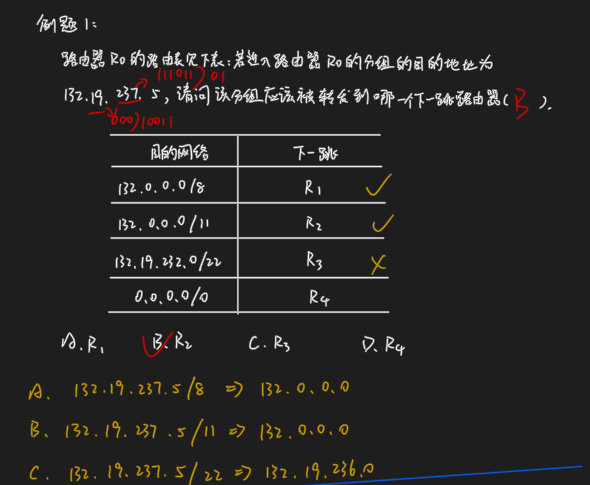 例题1:
路由器R0的路由表见下表:若进入路由器R0的分组的目的地址为
(11011)01
132.19.237.5,请问该分组应该被转发到哪一个下一跳路由器( B ).
000)10011
目的网络 下一跳
132.0.0.0/8 R1 ✓
132.0.0.0/11 R2 ✓
132.19.232.0/22 R3 ×
0.0.0.0/0 R4
A.R1 B.R2 C.R3 D.R4
A. 132.19.237.5/8 => 132.0.0.0
B. 132.19.237.5/11 => 132.0.0.0
C. 132.19.237.5/22 => 132.19.236.0